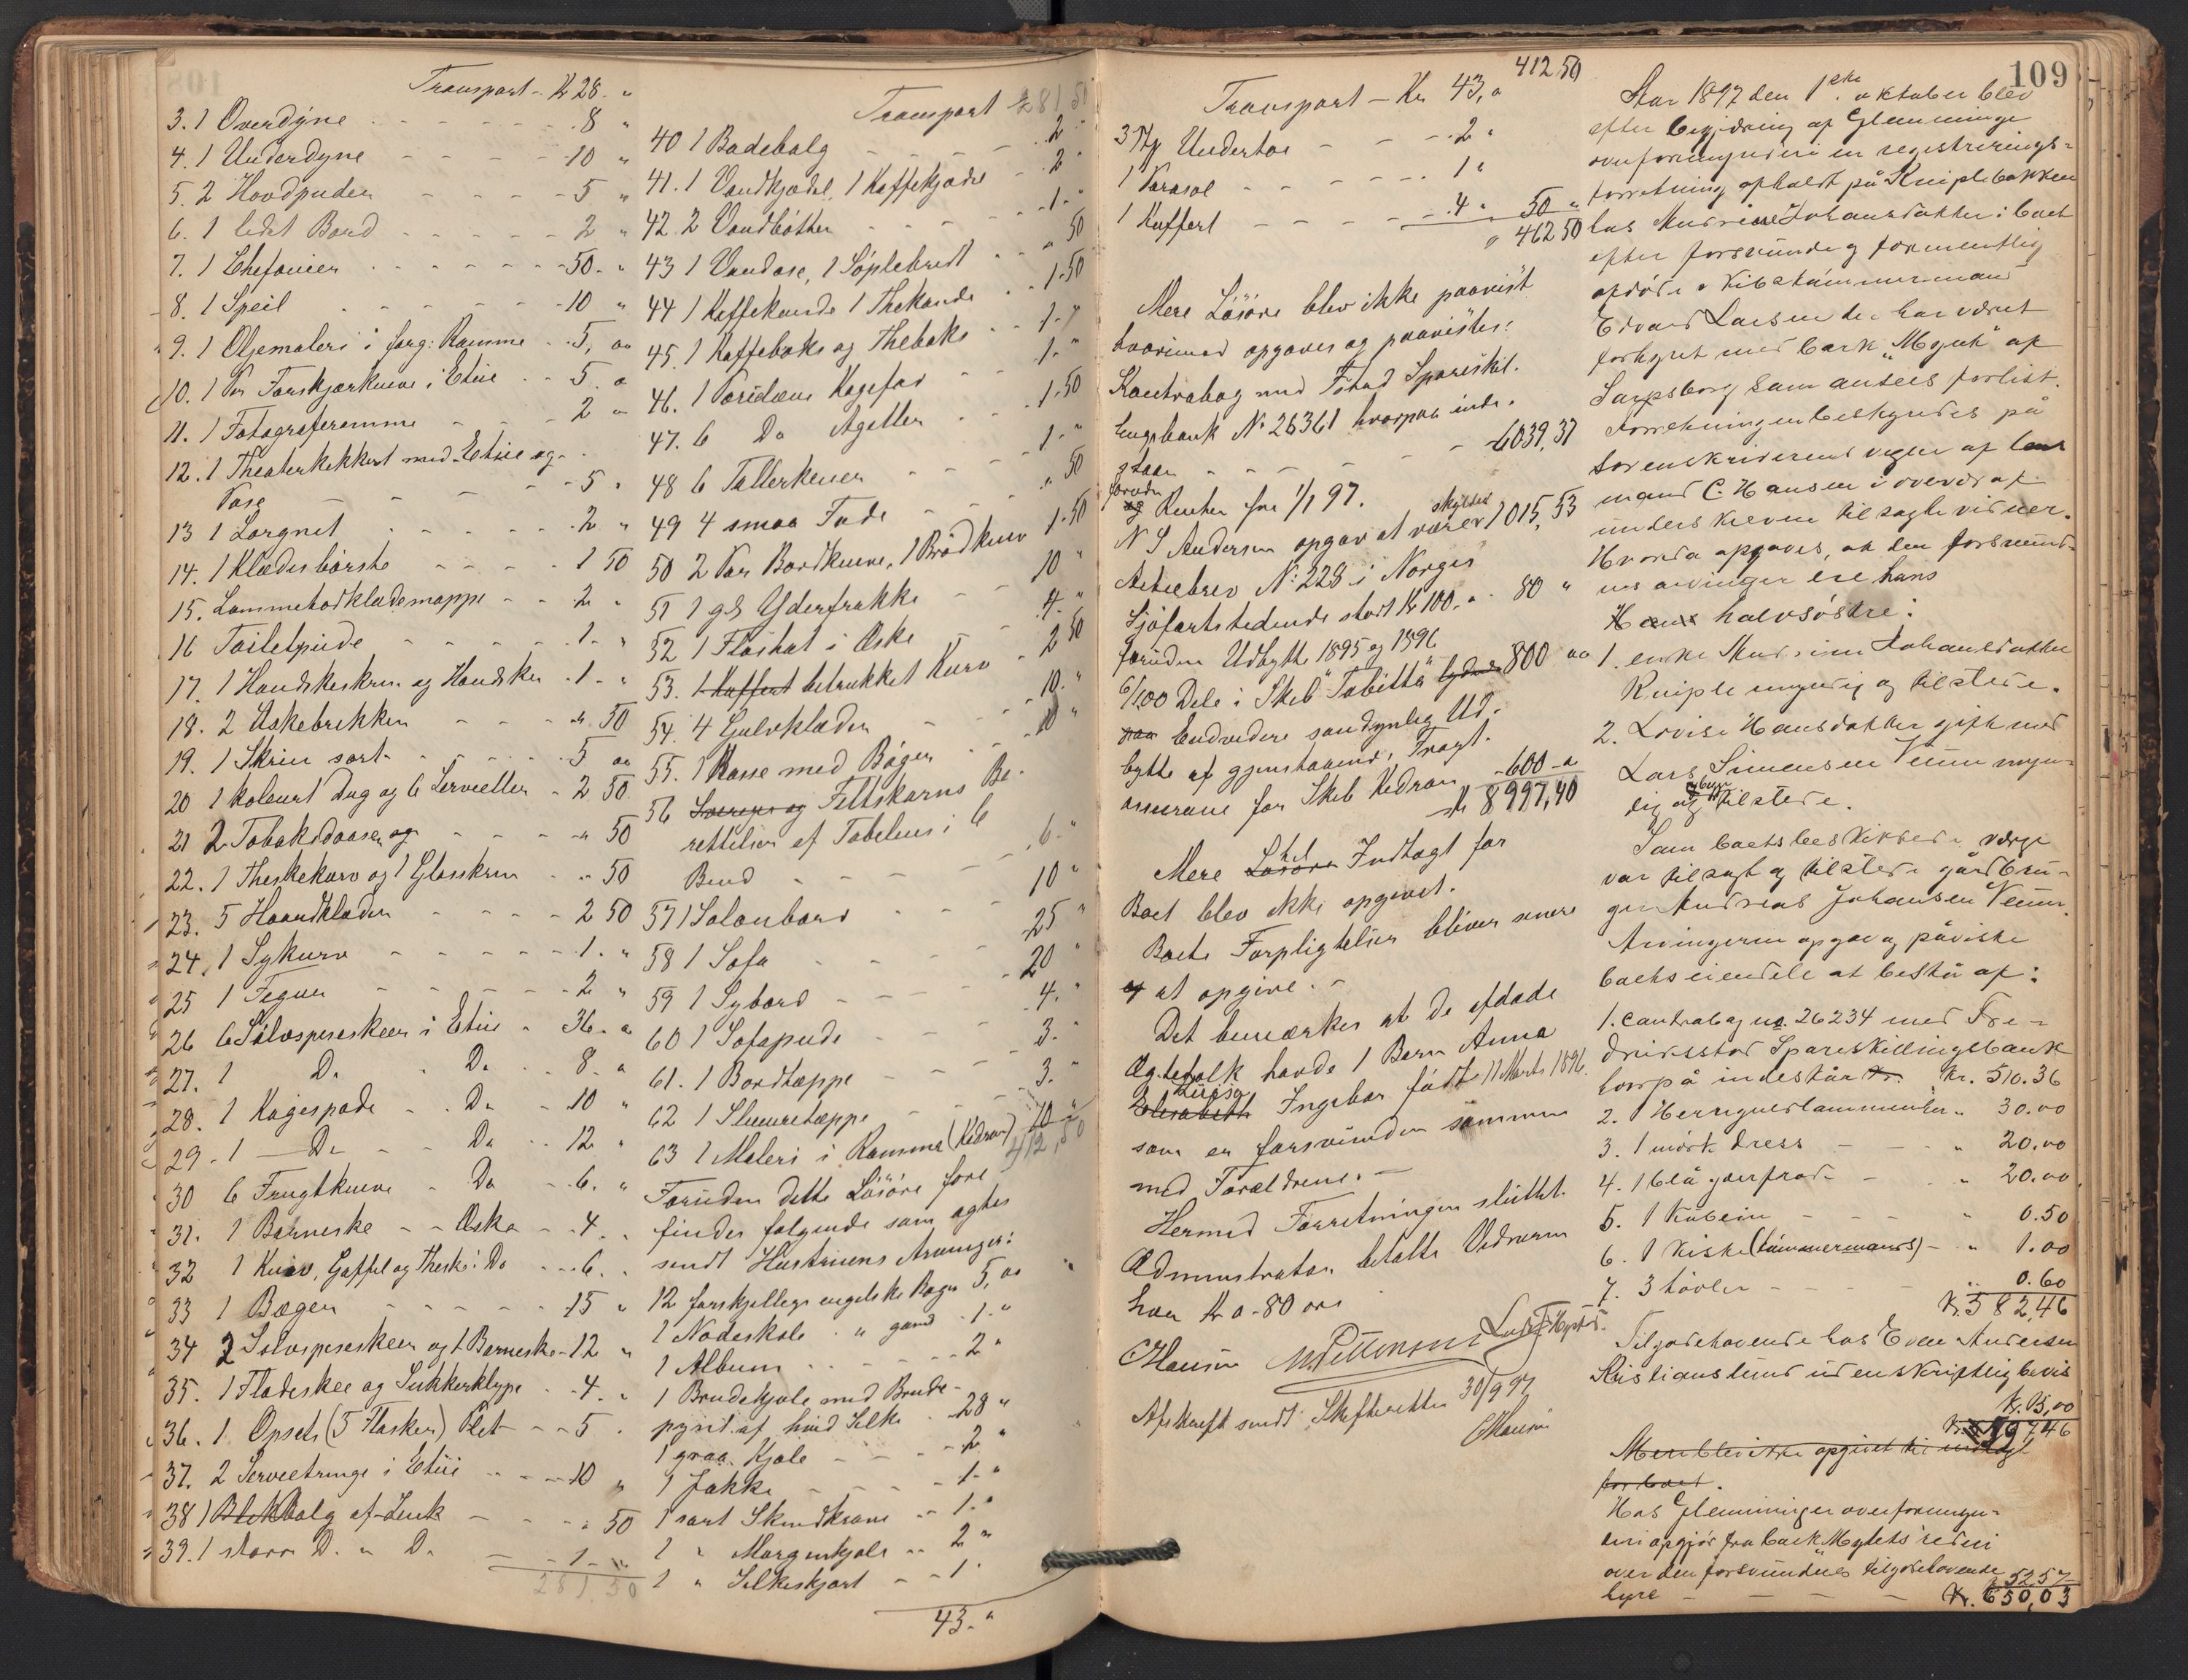 Transport - Kr 28. "
3. 1 Overdyne - - - 8 "
4. 1 Underdyne - - - 10 "
5. 2 Hovdpuder - - - 5 "
6. 1 lidet Bord - - - 2 "
7. 1 Chefonier - - - 50. "
8. 1 Speil - - - 10 "
9. 1 Oljemaleri i forg: Ramme - 5, "
10. 1 Par Forskjærkneve i Etui - 5. "
11. 1 Fotograferamme - - 2 "
12. 1 Theaterkikkert med Etui og
Vase - - - 5 "
13 1 Lorgnet - - - 2 "
14. 1 Klædesbørste - - - 1 50
15. Lommetørklædemappe - - 2 "
16 Toiletpude - - - 1. "
17. 1 Handskeskrin og Handsker - 1. "
18. 2 Askebrikker - - - " 50
19. 1 Skrin sort - - - 5 "
20 1 koleurt Dug og 6 Servietter - 2 50
21 2 Tobaksdaaser og - - - " 50
22. 1 Theskekurv og 1 Glasskrin - " 50
23. 5 Haandklæder - - - 2 50
24. 1 Sykurv - - - 1. "
25 1 Figur - - - 2 "
26 6 Sølvspiseskeer i Etui - 36. "
27. 1 Do Do - 8. "
28. 1 Kagespade - Do - 10 "
29. 1 - Do - - Do - 12 "
30 6 Frugtkneve - Do - 6. "
31. 1 Barneske - - Æske - 4. "
32 1 Kniv, Gaffel og Theske i Do - 6. "
33 1 Bæger - - - 15 "
34 2 Sølvspiseskeer og 1 Barneske - 12 "
35. 1 Flødeskee og Sukkerklype - 4. "
36. 1 Opsats (5 Flasker) Plet - - 5 "
37. 2 Servietringe i Etui - - - 10 "
38 1 Blik Balg af Zink - - - " 50
39. 1 større Do " Do - - 1. "
281 50
Transport 281,50
40 1 Badebalg - - - 2 "
41. 1 Vandkjedel, 1 Kaffekjedel - 2 "
42 2 Vandbøtter - - - 1. "
43 1 Vandøse, 1 Søplebrett - " 50
44 1 Kaffekande 1 Thekande - 1. 50
45. 1 Kaffeboks og Theboks - - 1. "
46. 1 Porcelæns Kagefad - - 1. "
47. 6 Do Agetter - - 1. 50
48 6 Tallerkener - - - 1. "
49 4 smaa Fade - - - " 50
50 2 Par Bordkneve, 1 Brødkurv 1. 50
51 1 gl. Yderfrakke - - 10 "
52 1 Floshat i Æske - - 4. "
53. 1 Kuffert betrukket Kurv - 2 50
54. 4 Gulvklæder - - - 10. "
55. 1 Kasse med Bøger - - 10 "
56 Sverges og Feltskærns Be-
rettelser af Tobelius i 6
Bind - - - 6. "
57 1 Salonbord - - - 10 "
58 1 Sofa - - - 25 "
59 1 Sybord - - - 20 "
60 1 Sofapude - - - 4. "
61. 1 Bordtæppe - - - 3. "
62 1 Slumretæppe - - - 3. "
63 1 Maleri i Ramme (Kedron) 10 "
412,50
Foruden dette Løsøre fore
findes følgende som agtes
sendt Hustruens Arvinger:
12 forskjellige engelske Bøger 5, "
1 Nodeskole " gand - 1. "
1 Album - - - 2 "
1 Brudekjole med Brude-
pynt af hvid Silke - 28 "
1 graa Kjole - - - 2 "
1 Jakke - - - 1. "
1 sort Skindkrave - - 1. "
1 " Morgenkjole - - 2 "
1 " Silkeskjørt - - 1.
43. "
412 50
Transport - Kr 43, "
3 Undertøi - - - 2 "
1 Parasol - - - 1 "
1 Kuffert - - - 4 " 50 "
" 462 50
Mere Løsøre blev ikke paavist
hvorimod opgaves og paavistes:
Kontrabog med F.stad Spareskil.
lingsbank No 26361 hvorpaa inde.
staar - - - 6039,37
foruden
og Renter fra 1/1 97.
N S Andersen opgav at være skyldig 1015,53
Aktiebrev No 228 i Norges
Sjøfartstidende stort Kr 100. " 80 "
foruden Udbytte 1895 og 1896
6/100 Dele i Skib "Tabitta" lydende 800 "
paa Endvidere sandsynlig Ud.
bytte af gjenstaaend, Fragt.
assurance for Skib Kedron - 600 "
Kr 8997,40
Mere Løsøre hel Indtægt for
Boet blev ikke opgivet.
Boets Forpligtelser bliver senere
og at opgive. -
Det bemærkes at De afdøde
Ægtefolk havde 1 Barn Anna
Elisabeth Lovisa Ingebor født 11 Marts 1896.
som er forsvunden sammen
med Forældrene. -
Hermed Forretningen sluttet.
Administrator betalte Vidnerne
hver Kr 0-80 øre
CHansen
Afskrift sendt Skifteretten 30/9 97
CHansen
109
Aar 1897 den 1ste oktober blev
efter begjæring af Glemminge
overformynderi en registrerings-
forretning afholdt på Kniplebakken
hos Andrine Johansdatter i boet
efter forsvunde og formentlig
afdøde skibstømmermand
Edvard Larsen der har været
forhyret med bark "Mynt" af
Sarpsborg som ansees forlist.
Forretningen bestyredes på
sorenskriverens vegne af lens
mand C. Hansen i overvær af
underskrevne tilsagte vidner.
Hvorda opgaves, at den forsvund-
nes arvinger ere hans
Hans halvsøstre:
1. enke Andrine Johansdatter
Kniple myndig og tilstede.
2. Lovise Hansdatter gift med
Lars Simensen Veum myn-
dig og tilstede.
Som boets beskikkede værge
var tilsagt og tilstede gårdbru-
ger Andreas Johansen Veum.
Arvingerne opgav og påviste
boets eiendele at bestå af:
1. Contrabog no. 26234 med Fre-
driksstad Spareskillingsbank
hvorpå indestår Kr. Kr. 510.36
2. 1 Herregulslommeuhr " 30.00
3. 1 mørk dress - - " 20.00
4. 1 blå yderfrak - - " 20.00
5. 1 Kubein - - - " 0.50
6. 1 kiste (tømmermands) - " 1.00
7. 3 høvler - - - " 0.60
Kr. 582,46
Tilgodehavende hos Even Andersen
Kristianslund uden skriftlig bevis
Kr. 15,00
Kr. 597 46
Mere blev ikke opgivet til indtægt
for boet.
Hos Glemminge overformyn-
deri opgjør fra bark Mynts rederi
over den forsvundnes tilgodehavende
hyre - - - 52 57
Kr. 650,03